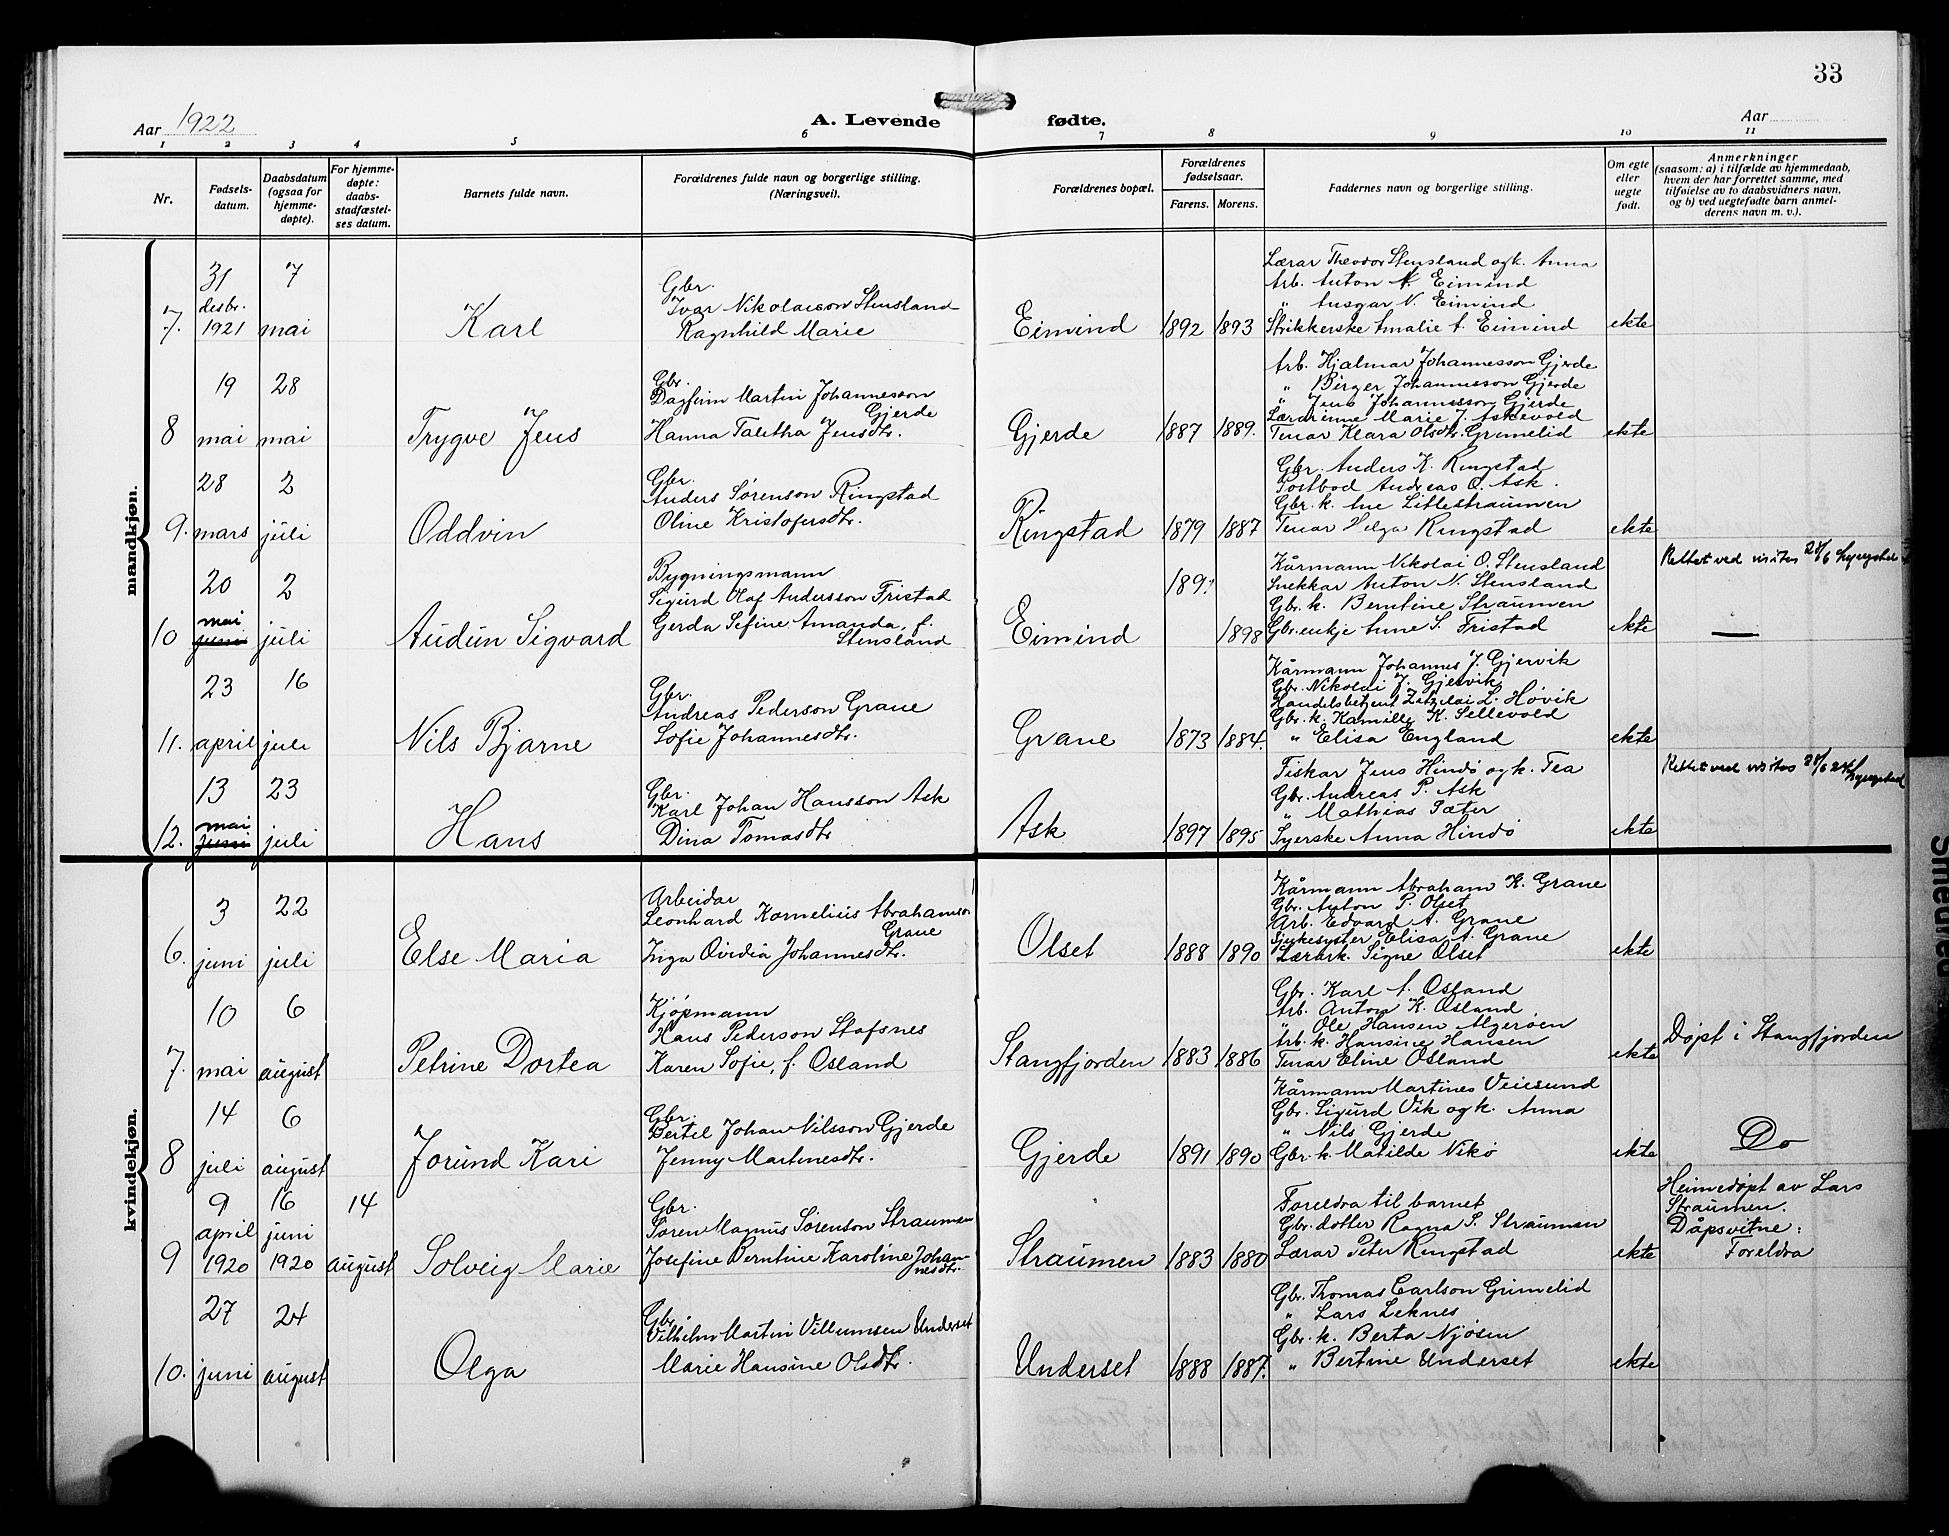 33
Aar 1922
A. Levende fødte.
Aar
1 2 3 4 5 6 7 8 9 10 11
Nr.
Fødsels-
datum.
Daabsdatum
(ogsaa for
hjemme-
døpte).
For hjemme-
døpte:
daabs-
stadfæstel-
ses datum.
Barnets fulde navn.
Forældrenes fulde navn og borgerlige stilling.
(Næringsvei).
Forældrenes bopæl.
Forældrenes
fødselsaar.
Farens. Morens.
Faddernes navn og borgerlige stilling.
Om egte
eller
uegte
født.
Anmerkninger
(saasom: a) i tilfælde av hjemmedaab,
hvem der har forrettet samme, med
tilføielse av to daabsvidners navn,
og b) ved uegtefødte barn anmel-
derens navn m. v.).
mandkjøn.
7.
31
desbr.
1921
7
mai
Karl
Gbr.
Ivar Nikolaison Stensland
Ragnhild Marie
Eimind
1892 1893
Lærar Theodor Stensland og k. Anna
Arb. Anton N. Eimind
" Ansgar N. Eimind
Strikkerske Amalie A. Eimind
ekte
8
19
mai
28
mai
Trygve Jens
Gbr.
Dagfinn Martin Johannesson
Gjerde
Hanna Talitha Jensdtr.
Gjerde
1887 1889.
Arb. Hjalmar Johannesson Gjerde
" Birger Johannesson Gjerde
" Jens Johannesson Gjerde
Lærarinne Marie J. Askevold
Tenar Klara Olsdtr. Grimelid
ekte
9.
28
mars
2
juli
Oddvin
Gbr.
Anders Sørenson Ringstad
Oline Kristofersdtr.
Ringstad
1879 1887
Gbr. Anders K. Ringstad
Postbod Andreas O. Ask.
Gbr. k. Ane Littlestraumen
Tenar Helga Ringstad
ekte
10
20
mai
juni
2
juli
Audun Sigvard
Bygningsmann
Sigurd Olaf Andersson Fristad
Gerda Sefine Amanda, f.
Stensland
Eimind
189
1898
Kårmann Nikolai O. Stensland
Snekkar Anton N. Stensland
Gbr. k. Berntine Straumen
Gbr.enkje Anne S. Fristad
ekte
Rettet ved visitas 28/6
11.
23
april
16
juli
Nils Bjarne
Gbr.
Andreas Pederson Grane
Sofie Johannesdtr.
Grane
1873 1884.
Kårmann Johannes J. Gjervik
Gbr. Nikolai J. Gjervik
Handelsbetjent L. Høvik
Gbr. k. Kamille K. Sellevold
" Elisa England
ekte
12.
13
mai
juni
23
juli
Hans
Gbr.
Karl Johan Hansson Ask
Dina Tomasdtr
Ask
1897 1895
Fiskar Jens Hindø og k. Tea
Gbr. Andreas P. Ask
" Mathias Sæter
Syerske Anna Hindø
ekte
Rettet ved visitas 28/6 24
kvindekjøn.
6.
3
juni
22
juli
Else Maria
Arbeidar
Leonhard Kornelius Abrahamson
Grane
Inga Ovidia Johannesdtr.
Olset
1888 1890
Kårmann Abraham K. Grane
Gbr. Anton P. Olset
Arb. Edvard A. Grane
Sjukesyster Elisa A. Grane
Lærark. Signe Olset
ekte
7.
10
mai
6
august
Petrine Dortea
Kjøpmann
Hans Pederson Stafsnes
Karen Sofie, f. Osland
Stangfjorden
1883 1886
Gbr. Karl A. Osland
Arb. Anton K. Osland
" Ole Hansen Algerøen
Arb. k. Hansine Hansen
Tenar Eline Osland
ekte
Døpt i Stangfjorden
8
14
juli
6
august
Jorund Kari
Gbr.
Bertel Johan Nilsson Gjerde
Jenny Martinesdtr.
Gjerde
1891 1890
Kårmann Martines Veiesund
Gbr. Sigurd Vik og k. Anna
" Nils Gjerde
Gbr. k. Matilde Vikø
ekte
Do
9
9
april
1920
16
juni
1920
14
august
Solveig Marie
Gbr.
Søren Magnus Sørenson Straumen
Josefine Berntine Karoline Johan-
nesdtr.
Straumen
1883 1880
Foreldra til barnet
Gbr. dotter Ragna S. Straumen
Lærar Peter Ringstad
ekte
Heimedøpt av Lars
Straumen.
Dåpsvitne:
Foreldra
10.
27
juni
24
august
Olga
Gbr.
Vilhelm Martin Villumsen Underset
Marie Hansine Olsdtr.
Underset
1888 1887.
Gbr. Thomas Carlson Grimelid
" Lars Leknes
Gbr. k. Berta Njøsen
" Bertine Underset
ekte